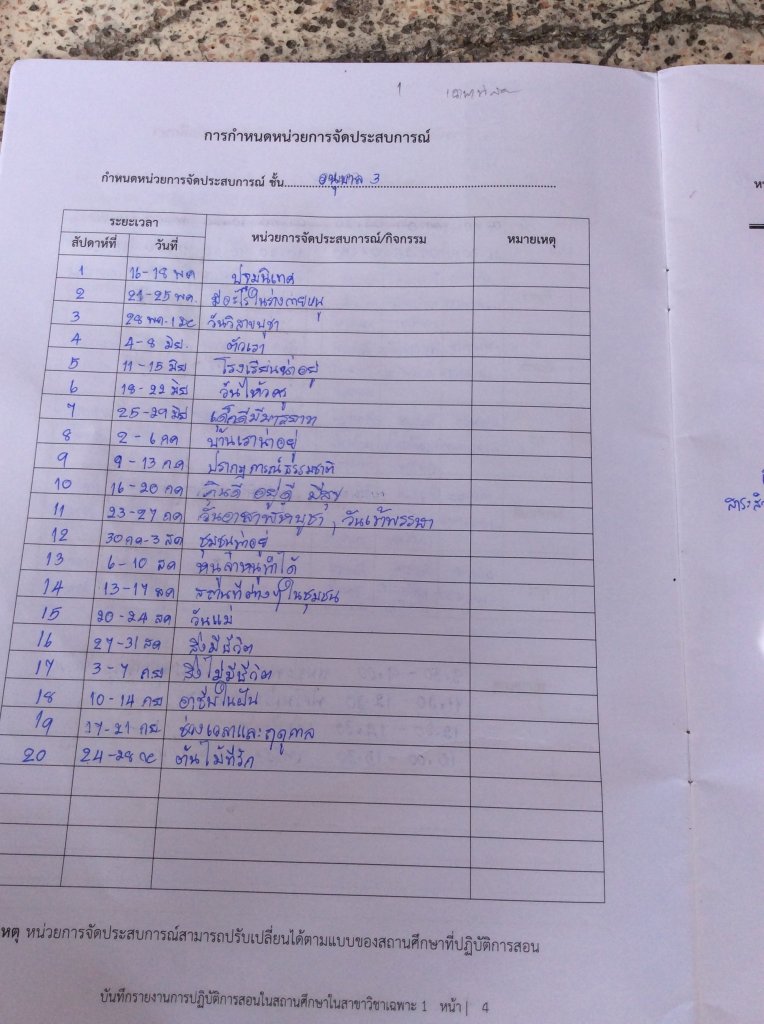 1
การกำหนดหน่วยการจัดประสบการณ์
กำหนดหน่วยการจัดประสบการณ์ ชั้น อนุบาล 3
ระยะเวลา
สัปดาห์ที่ วันที่ หน่วยการจัดประสบการณ์/กิจกรรม หมายเหตุ
1 16-18 พค ปฐมนิเทศ
2 21-25 พค. มีอะไรในร่างกายหนู
3 28 พค-1 วันวิสาขบูชา
4 4-8 มิย. ตัวเรา
5 11-15 มิย โรงเรียนน่าอยู่
6 18-22 มิย วันไหว้ครู
7 25-29 มิย เด็กดีมีมารยาท
8 2-6 กค บ้านเราน่าอยู่
9 9-13 กค ปรากฏการณ์ธรรมชาติ
10 16-20 กค กินดี อยู่ดี มีสุข
11 23-27 กค วันอาสาฬหบูชา, วันเข้าพรรษา
12 30 กค-3 สค ชุมชนน่าอยู่
13 6-10 สค หนูทำได้
14 13-17 สค สถานที่ต่างๆในชุมชน
15 20-24 สค วันแม่
16 27-31 สค สิ่งมีชีวิต
17 3-7 กย สิ่งไม่มีชีวิต
18 10-14 กย อาชีพในฝัน
19 17-21 กย ช่วงเวลาและฤดูกาล
20 24-28 ต้นไม้ที่รัก
เหตุ หน่วยการจัดประสบการณ์สามารถปรับเปลี่ยนได้ตามแบบของสถานศึกษาที่ปฏิบัติการสอน
บันทึกรายงานการปฏิบัติการสอนในสถานศึกษาในสาขาวิชาเฉพาะ 1 หน้า | 4